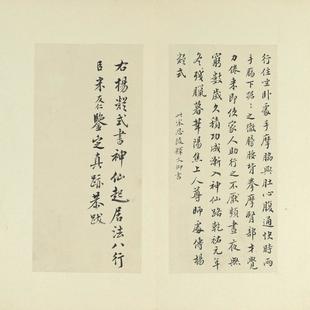 行住坐卧處手摩脇與肚心腹通快時兩
手腸下踞〻之徹膀腰背拳摩腎部才覺
力倦来即使家人助行之不厭頻晝夜無
窮數歲久積功成漸入神仙路乾祐元年
冬殘臘暮華陽焦上人尊師處傳楊
凝式
右楊凝式書神仙起居法八行
臣米友仁鑒定真跡恭跋